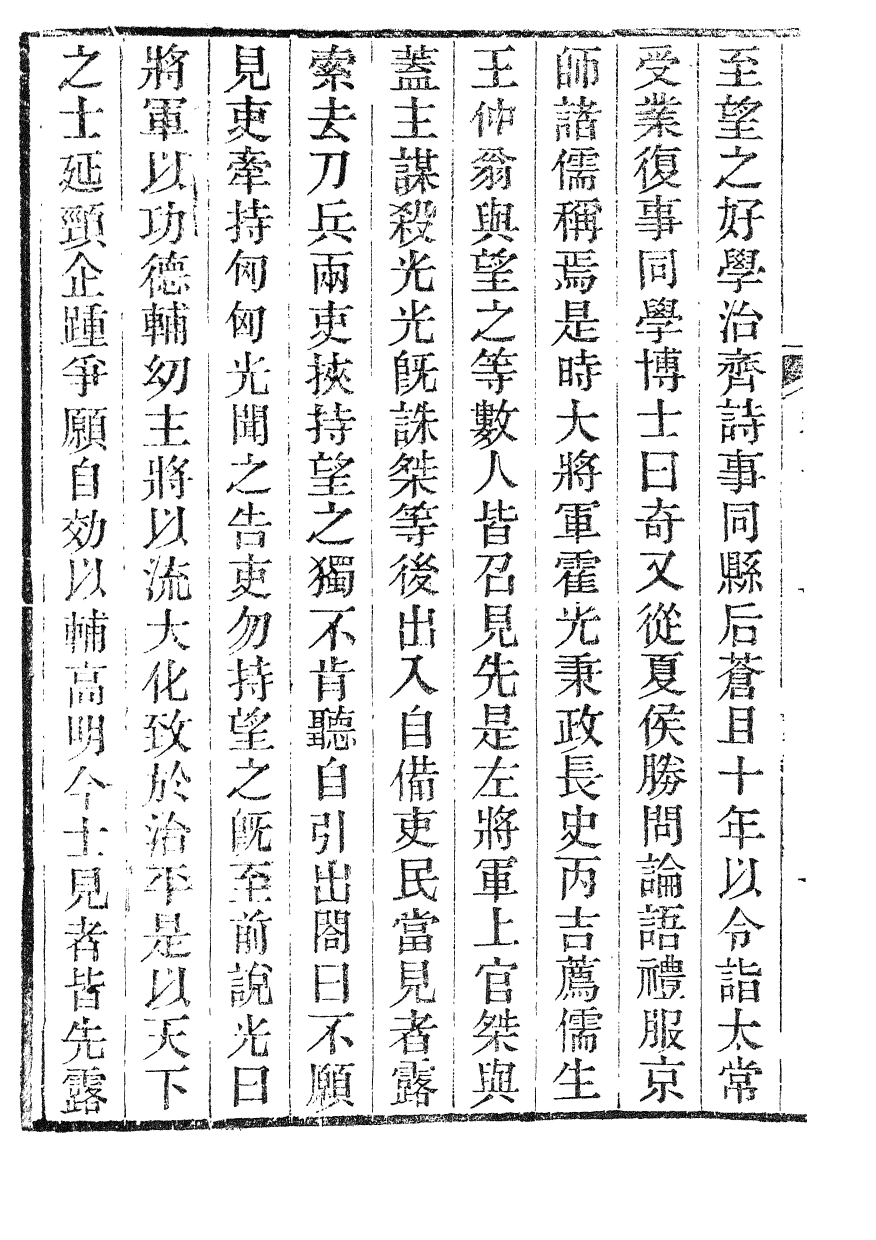 至望之好學治齊詩事同縣后蒼且十年以令詣太常
受業復事同學博士曰奇又從夏侯勝問論語禮服京
師諸儒稱焉是時大將軍霍光秉政長史丙吉薦儒生
王仲翁與望之等數人皆召見先是左將軍上官桀與
蓋主謀殺光光旣誅桀等後出入自備吏民當見者露
索去刀兵兩吏挾持望之獨不肯聽自引出閤曰不願
見吏牽持匈匈光聞之告吏勿持望之旣至前說光曰
將軍以功德輔幼主將以流大化致於治平是以天下
之士延頸企踵爭願自効以輔高明今士見者皆先露